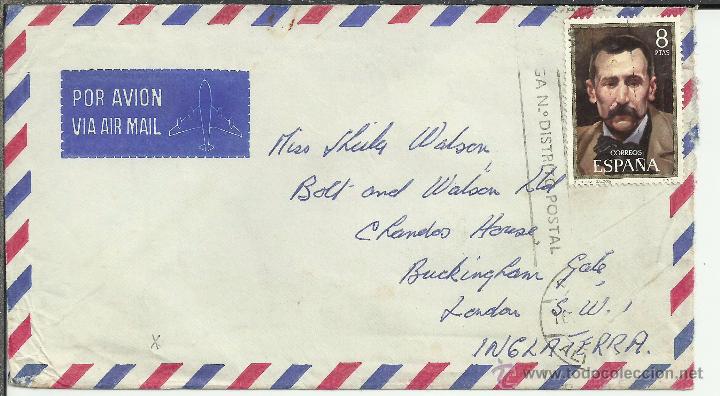 POR AVION
VIA AIR MAIL
8
PTAS
CORREOS
ESPAÑA
GA N.º DISTRITO POSTAL
Miss Sheila Watson,
Bolt and Watson Ltd
Chandos House,
Buckingham Gate,
London S.W.1
INGLATERRA.
x
todocoleccion.net